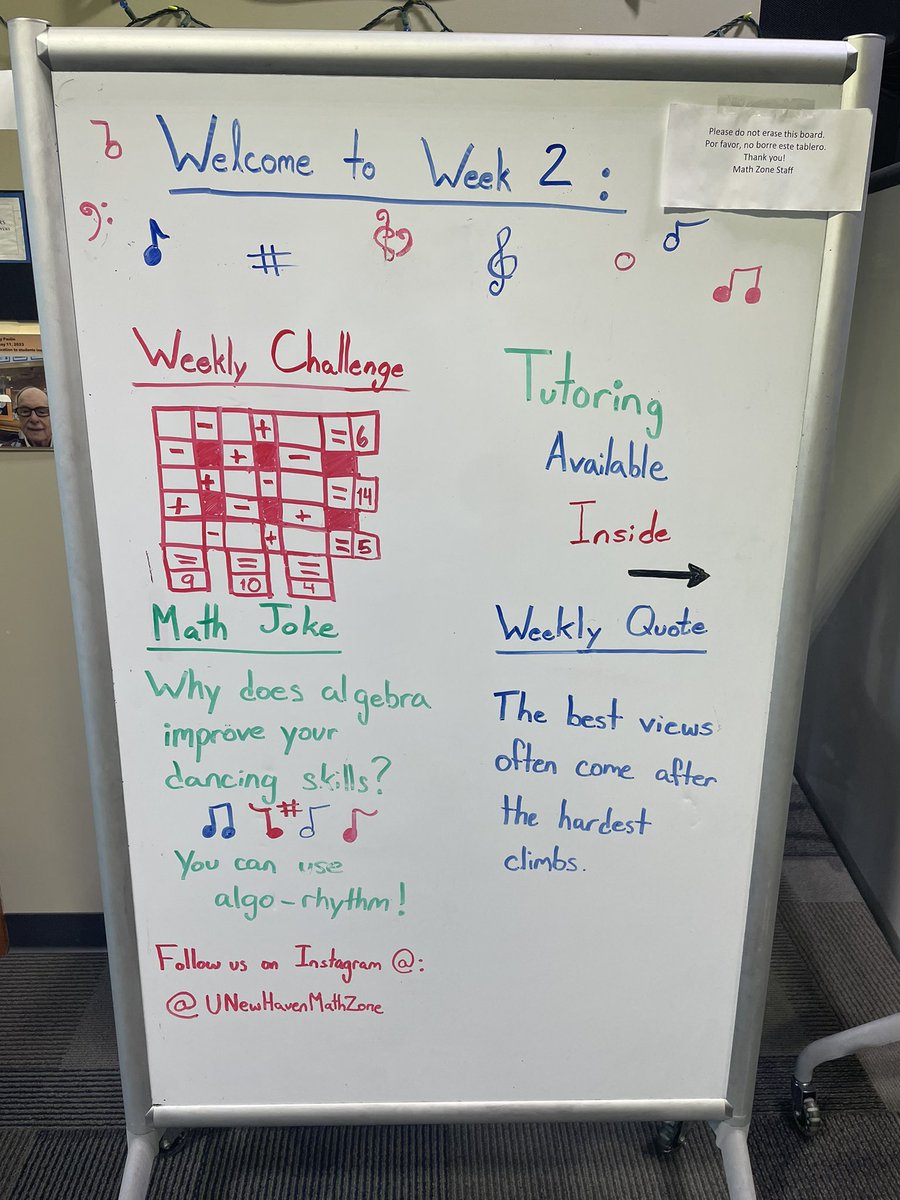 Welcome to Week 2:
Please do not erase this board.
Por favor, no borre este tablero.
Thank you!
Math Zone Staff
Weekly Challenge
- + = 6
- + -
+ - = 14
+ - +
- + = 5
= = =
9 10 4
Tutoring
Available
Inside
Math Joke
Why does algebra
improve your
dancing skills?
You can use
algo-rhythm!
Weekly Quote
The best views
often come after
the hardest
climbs.
Follow us on Instagram @:
@UNewHavenMathZone